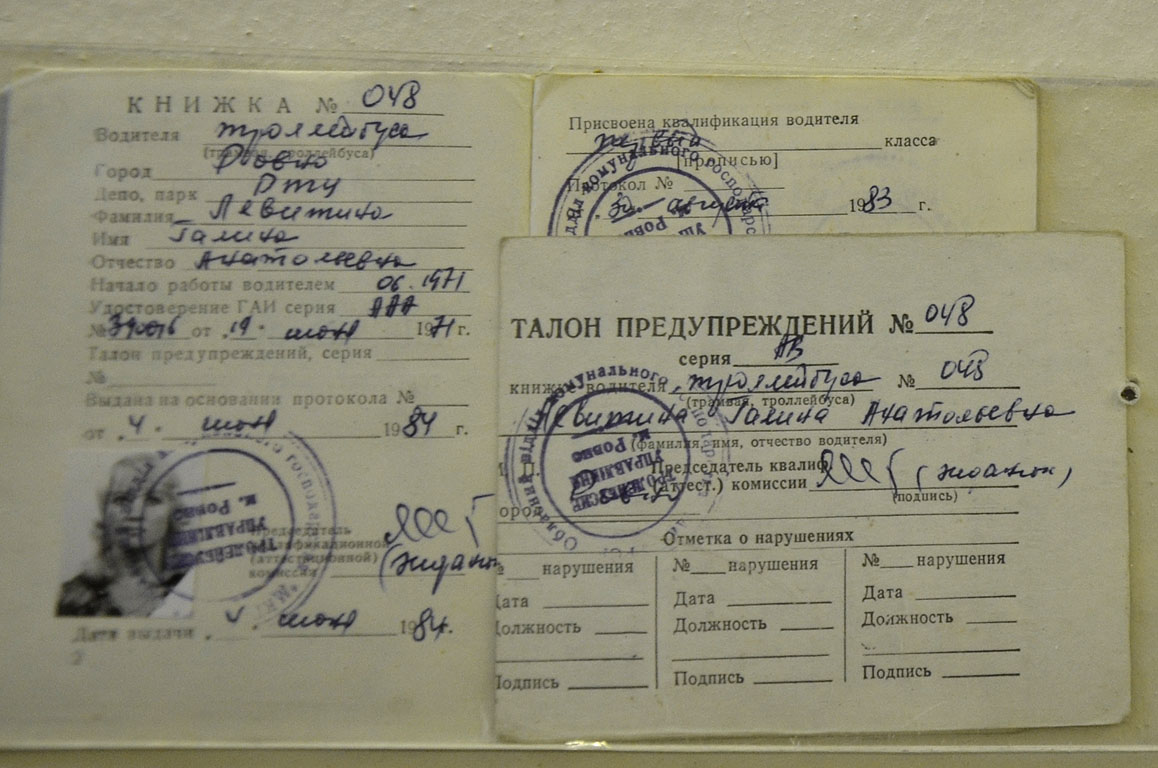 КНИЖКА № 048
Водителя троллейбуса
(трамвая, троллейбуса)
Город Ровно
Депо, парк РТУ
Фамилия Левитина
Имя Галина
Отчество Анатольевна
Начало работы водителем 06.1971
Удостоверение ГАИ серия ААА
№ от 19. июня 1971 г.
Талон предупреждений, серия
№
Выдана на основании протокола №
от 4. июня 1984 г.
Председатель
квалификационной
(аттестационной)
комиссии
Дата выдачи 4. июня 1984.
2
ТРОЛЕЙБУСНЕ
УПРАВЛІННЯ
м. Ровно
Присвоена квалификация водителя
первый класса
[прописью]
Протокол №
30. августа 1983 г.
ТАЛОН ПРЕДУПРЕЖДЕНИЙ № 048
серия АВ
книжки водителя троллейбуса № 048
(трамвая, троллейбуса)
Левитина Галина Анатольевна
(фамилия, имя, отчество водителя)
Председатель квалиф.
(аттест.) комиссии
(подпись)
город
Отметка о нарушениях
№ нарушения № нарушения № нарушения
Дата Дата Дата
Должность Должность Должность
Подпись Подпись Подпись
Обласний відділ комунального господарства
ТРОЛЕЙБУСНЕ
УПРАВЛІННЯ
м. Ровно